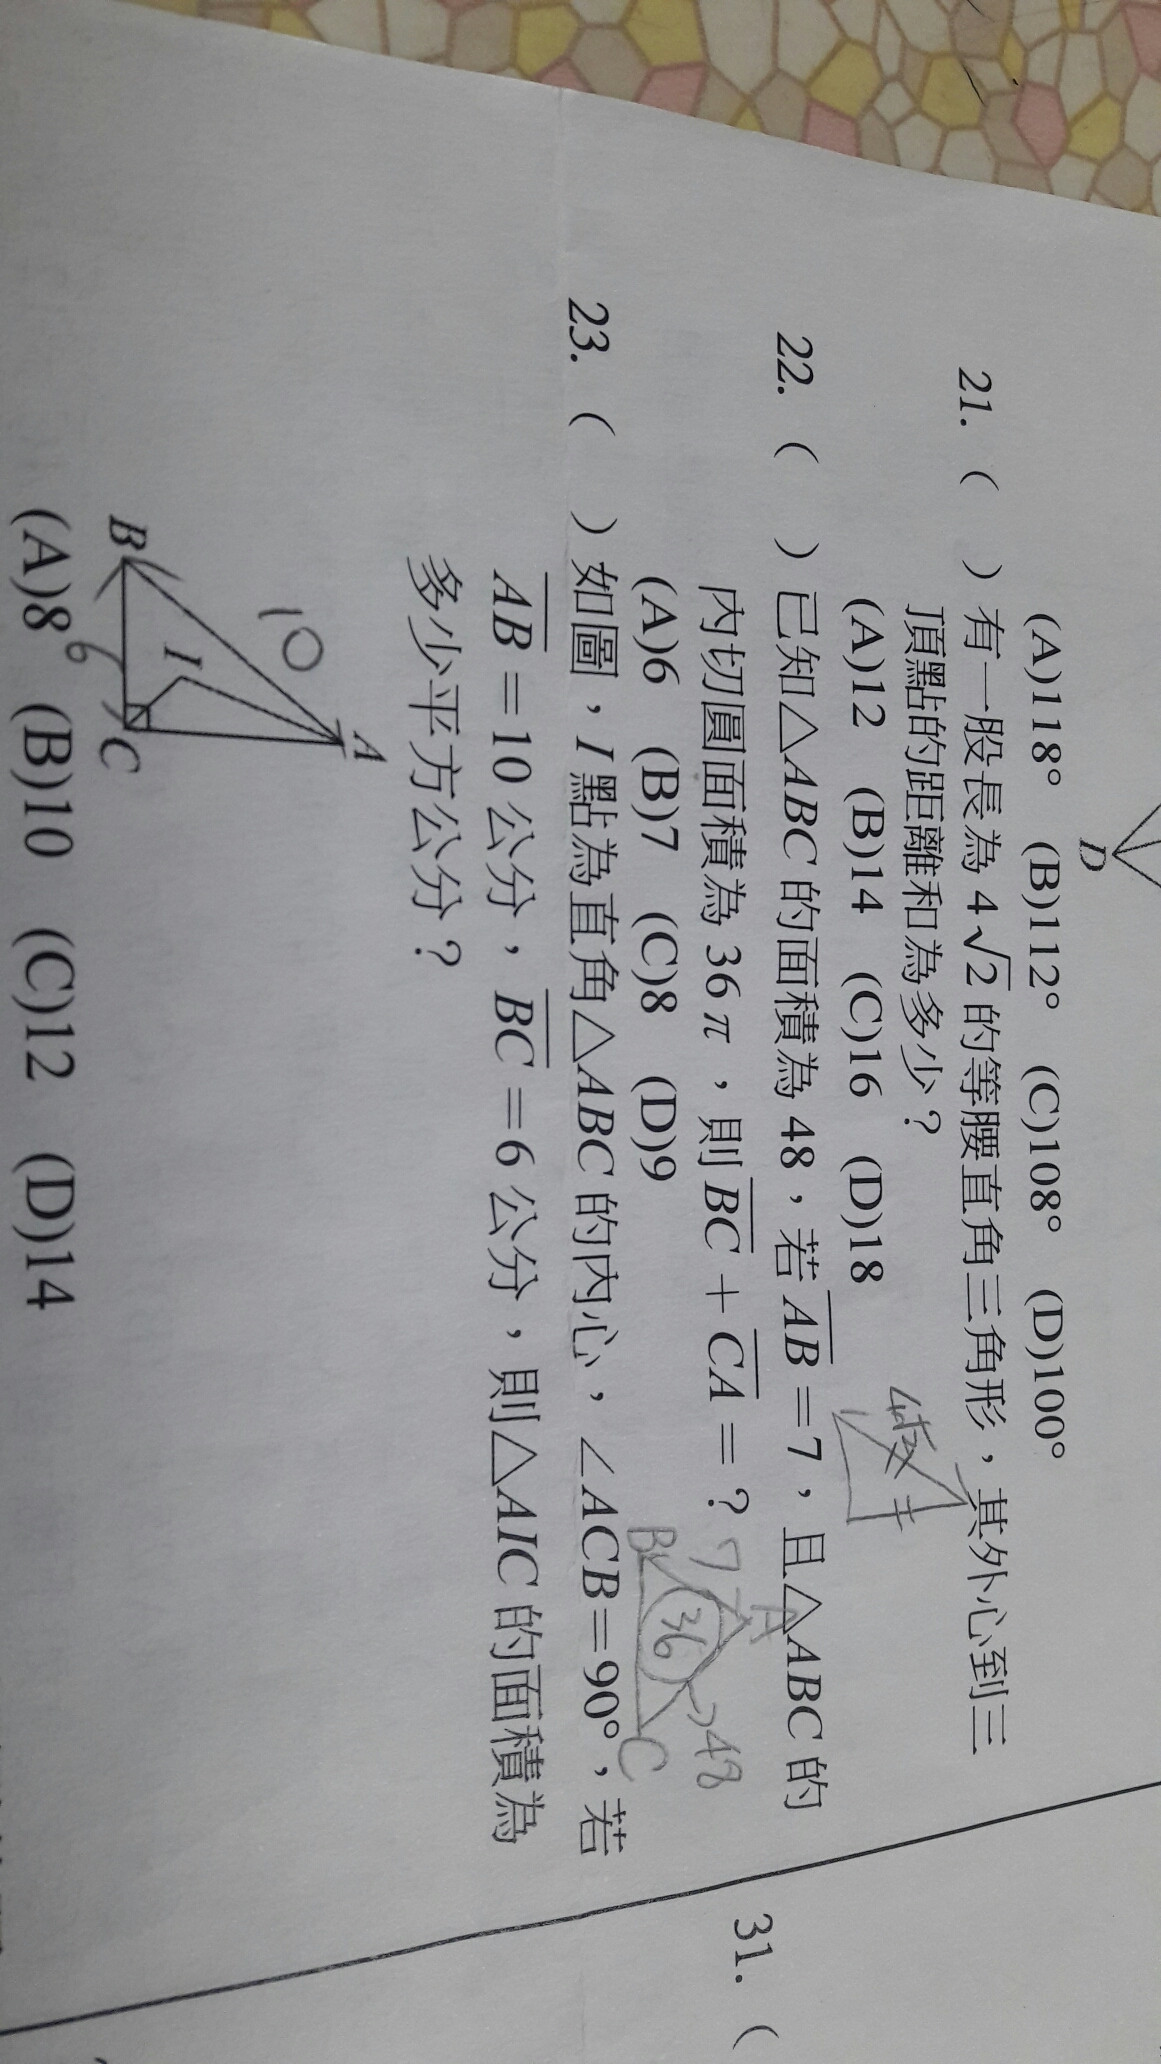 D
(A)118° (B)112° (C)108° (D)100°
21. ( ) 有一股長為 4√2 的等腰直角三角形，其外心到三
頂點的距離和為多少？
(A)12 (B)14 (C)16 (D)18
4√2
22. ( ) 已知△ABC 的面積為 48，若 AB＝7，且△ABC 的
內切圓面積為 36π，則 BC＋CA＝？
(A)6 (B)7 (C)8 (D)9
A
7
36
48
B
C
23. ( ) 如圖，I 點為直角△ABC 的內心，∠ACB＝90°，若
AB＝10 公分，BC＝6 公分，則△AIC 的面積為
多少平方公分？
A
10
I
B
C
6
(A)8 (B)10 (C)12 (D)14
31. (